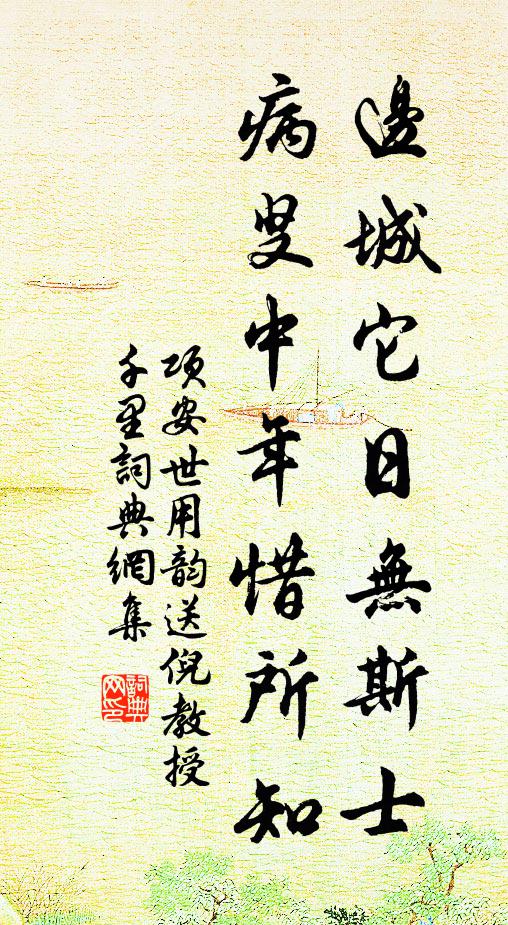 邊城它日無斯士
病叟中年惜所知
項安世用韵送倪教授
千里詞典網集
詞典网印